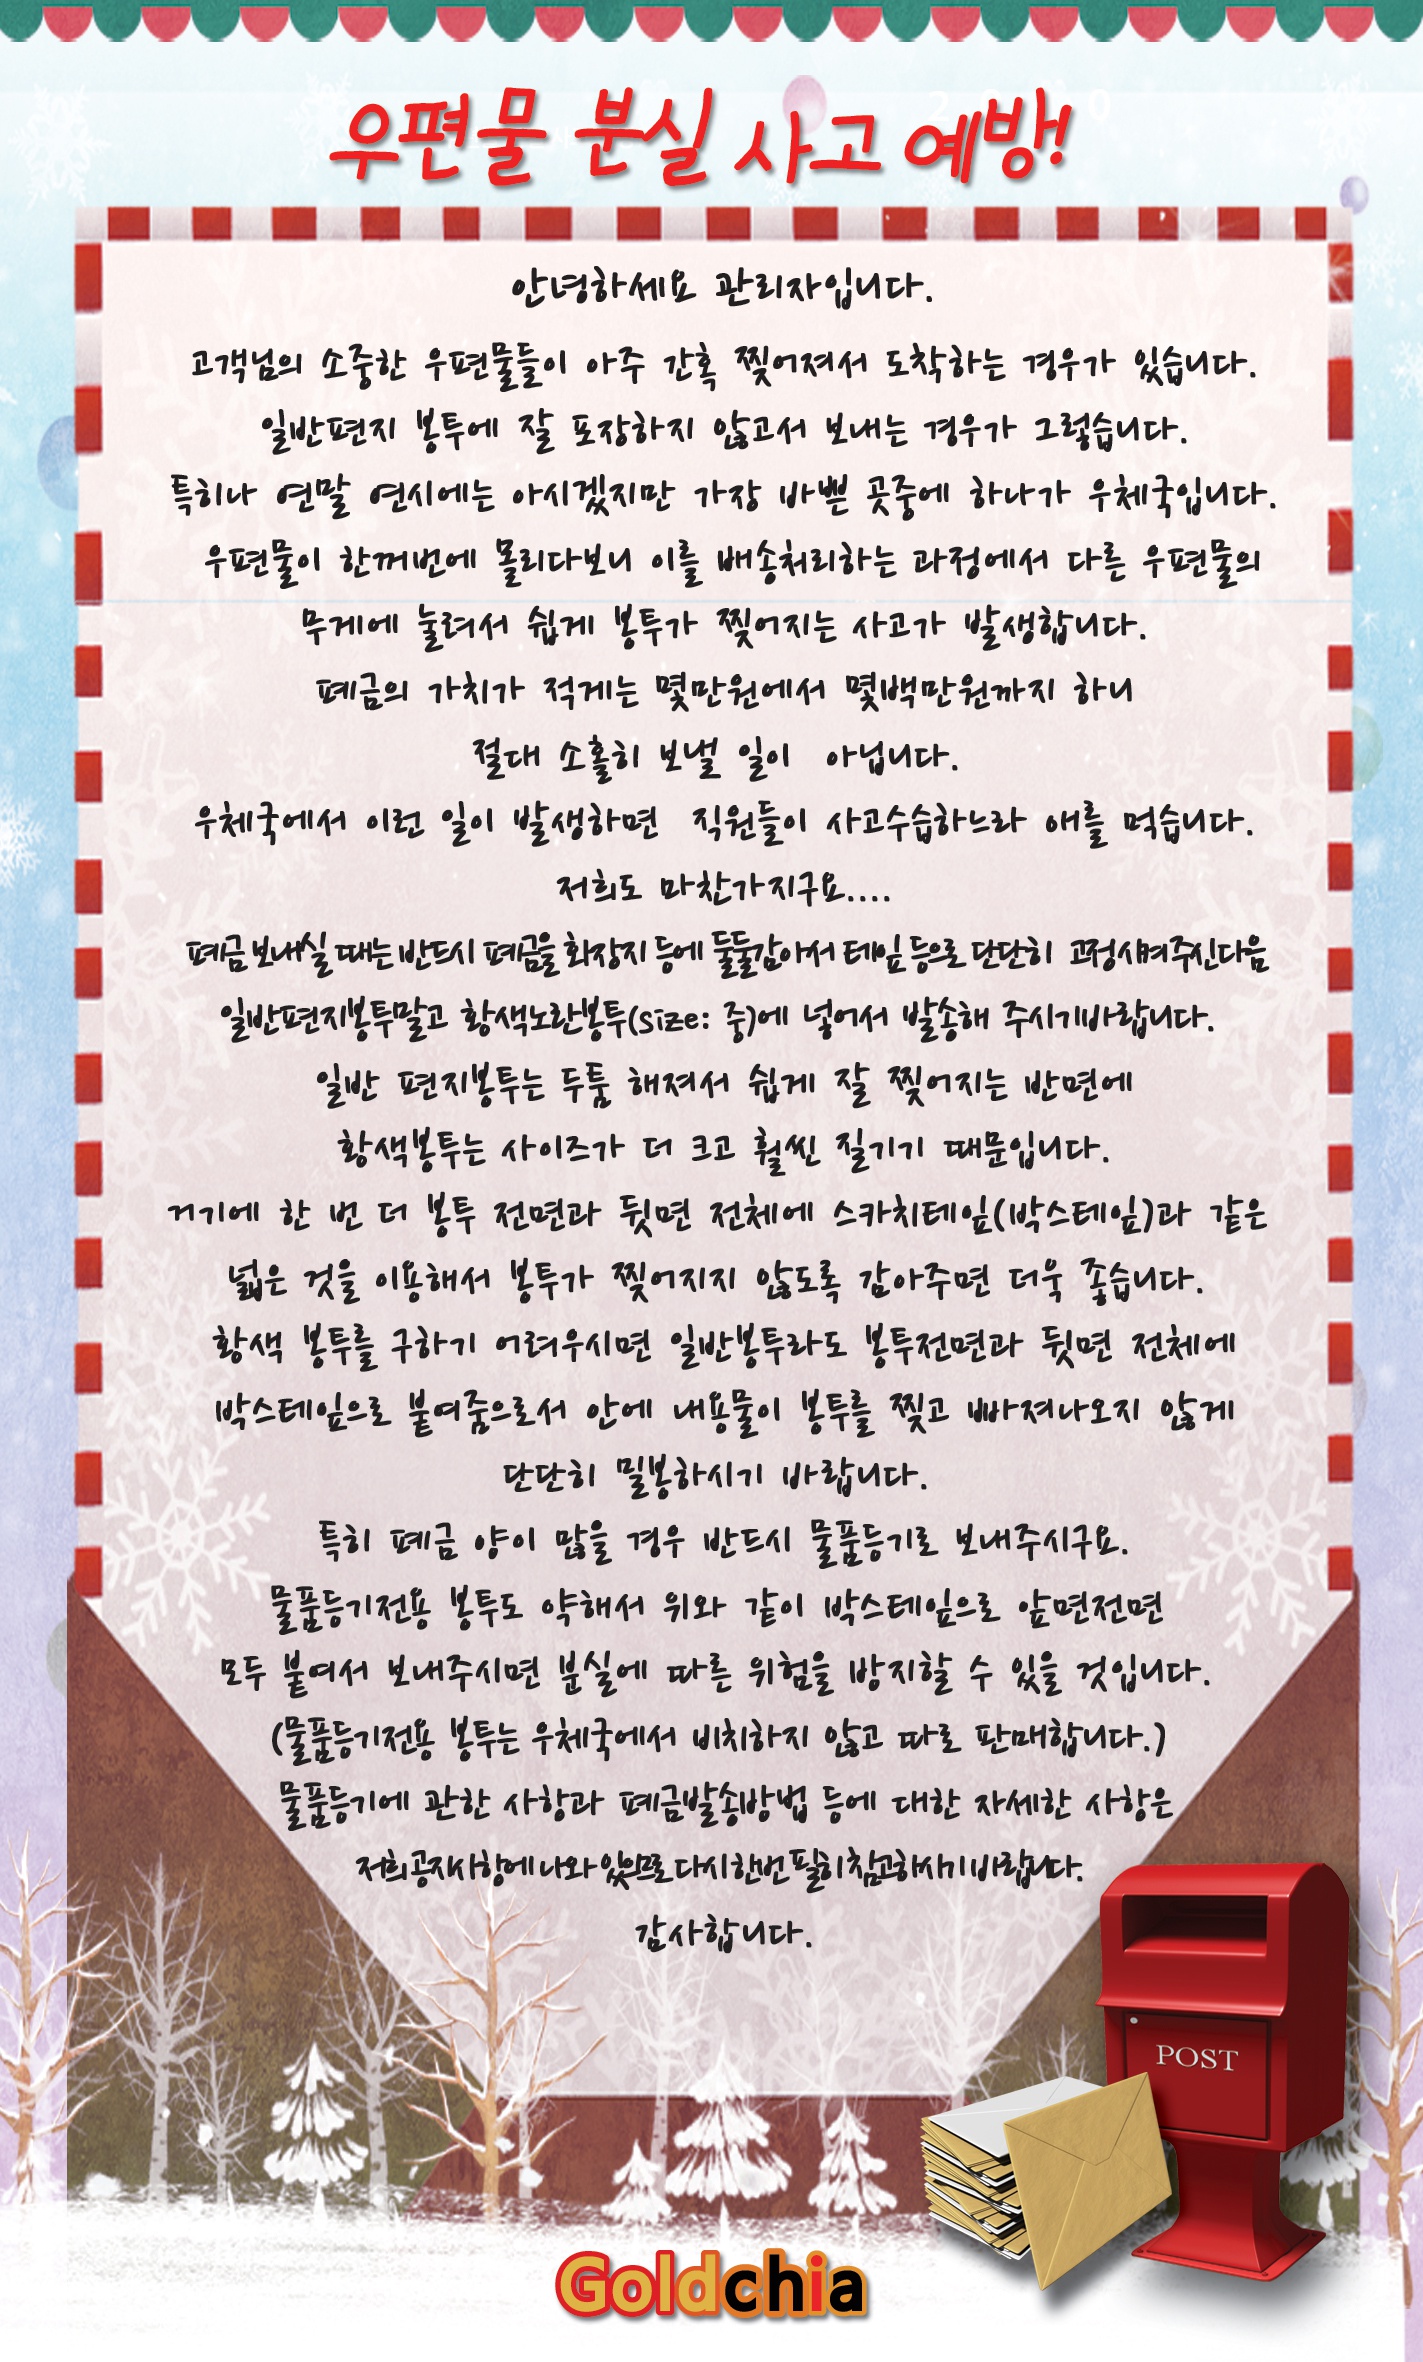 우편물 분실 사고 예방!
안녕하세요 관리자입니다.
고객님의 소중한 우편물들이 아주 간혹 찢어져서 도착하는 경우가 있습니다.
일반편지 봉투에 잘 포장하지 않고서 보내는 경우가 그렇습니다.
특히나 연말 연시에는 아시겠지만 가장 바쁜 곳중에 하나가 우체국입니다.
우편물이 한꺼번에 몰리다보니 이를 배송처리하는 과정에서 다른 우편물의
무게에 눌려서 쉽게 봉투가 찢어지는 사고가 발생합니다.
폐금의 가치가 적게는 몇만원에서 몇백만원까지 하니
절대 소홀히 보낼 일이 아닙니다.
우체국에서 이런 일이 발생하면 직원들이 사고수습하느라 애를 먹습니다.
저희도 마찬가지구요....
폐금 보내실 때는 반드시 폐금을 화장지 등에 둘둘감아서 테잎 등으로 단단히 고정시켜주신다음
일반편지봉투말고 황색노란봉투(size: 중)에 넣어서 발송해 주시기바랍니다.
일반 편지봉투는 두툼 해져서 쉽게 잘 찢어지는 반면에
황색봉투는 사이즈가 더 크고 훨씬 질기기 때문입니다.
거기에 한 번 더 봉투 전면과 뒷면 전체에 스카치테잎(박스테잎)과 같은
넓은 것을 이용해서 봉투가 찢어지지 않도록 감아주면 더욱 좋습니다.
황색 봉투를 구하기 어려우시면 일반봉투라도 봉투전면과 뒷면 전체에
박스테잎으로 붙여줌으로서 안에 내용물이 봉투를 찢고 빠져나오지 않게
단단히 밀봉하시기 바랍니다.
특히 폐금 양이 많을 경우 반드시 물품등기로 보내주시구요.
물품등기전용 봉투도 약해서 위와 같이 박스테잎으로 앞면전면
모두 붙여서 보내주시면 분실에 따른 위험을 방지할 수 있을 것입니다.
(물품등기전용 봉투는 우체국에서 비치하지 않고 따로 판매합니다.)
물품등기에 관한 사항과 폐금발송방법 등에 대한 자세한 사항은
저희 공지사항에 나와 있으므로 다시한번 필히 참고하시기 바랍니다.
감사합니다.
POST
Goldchia